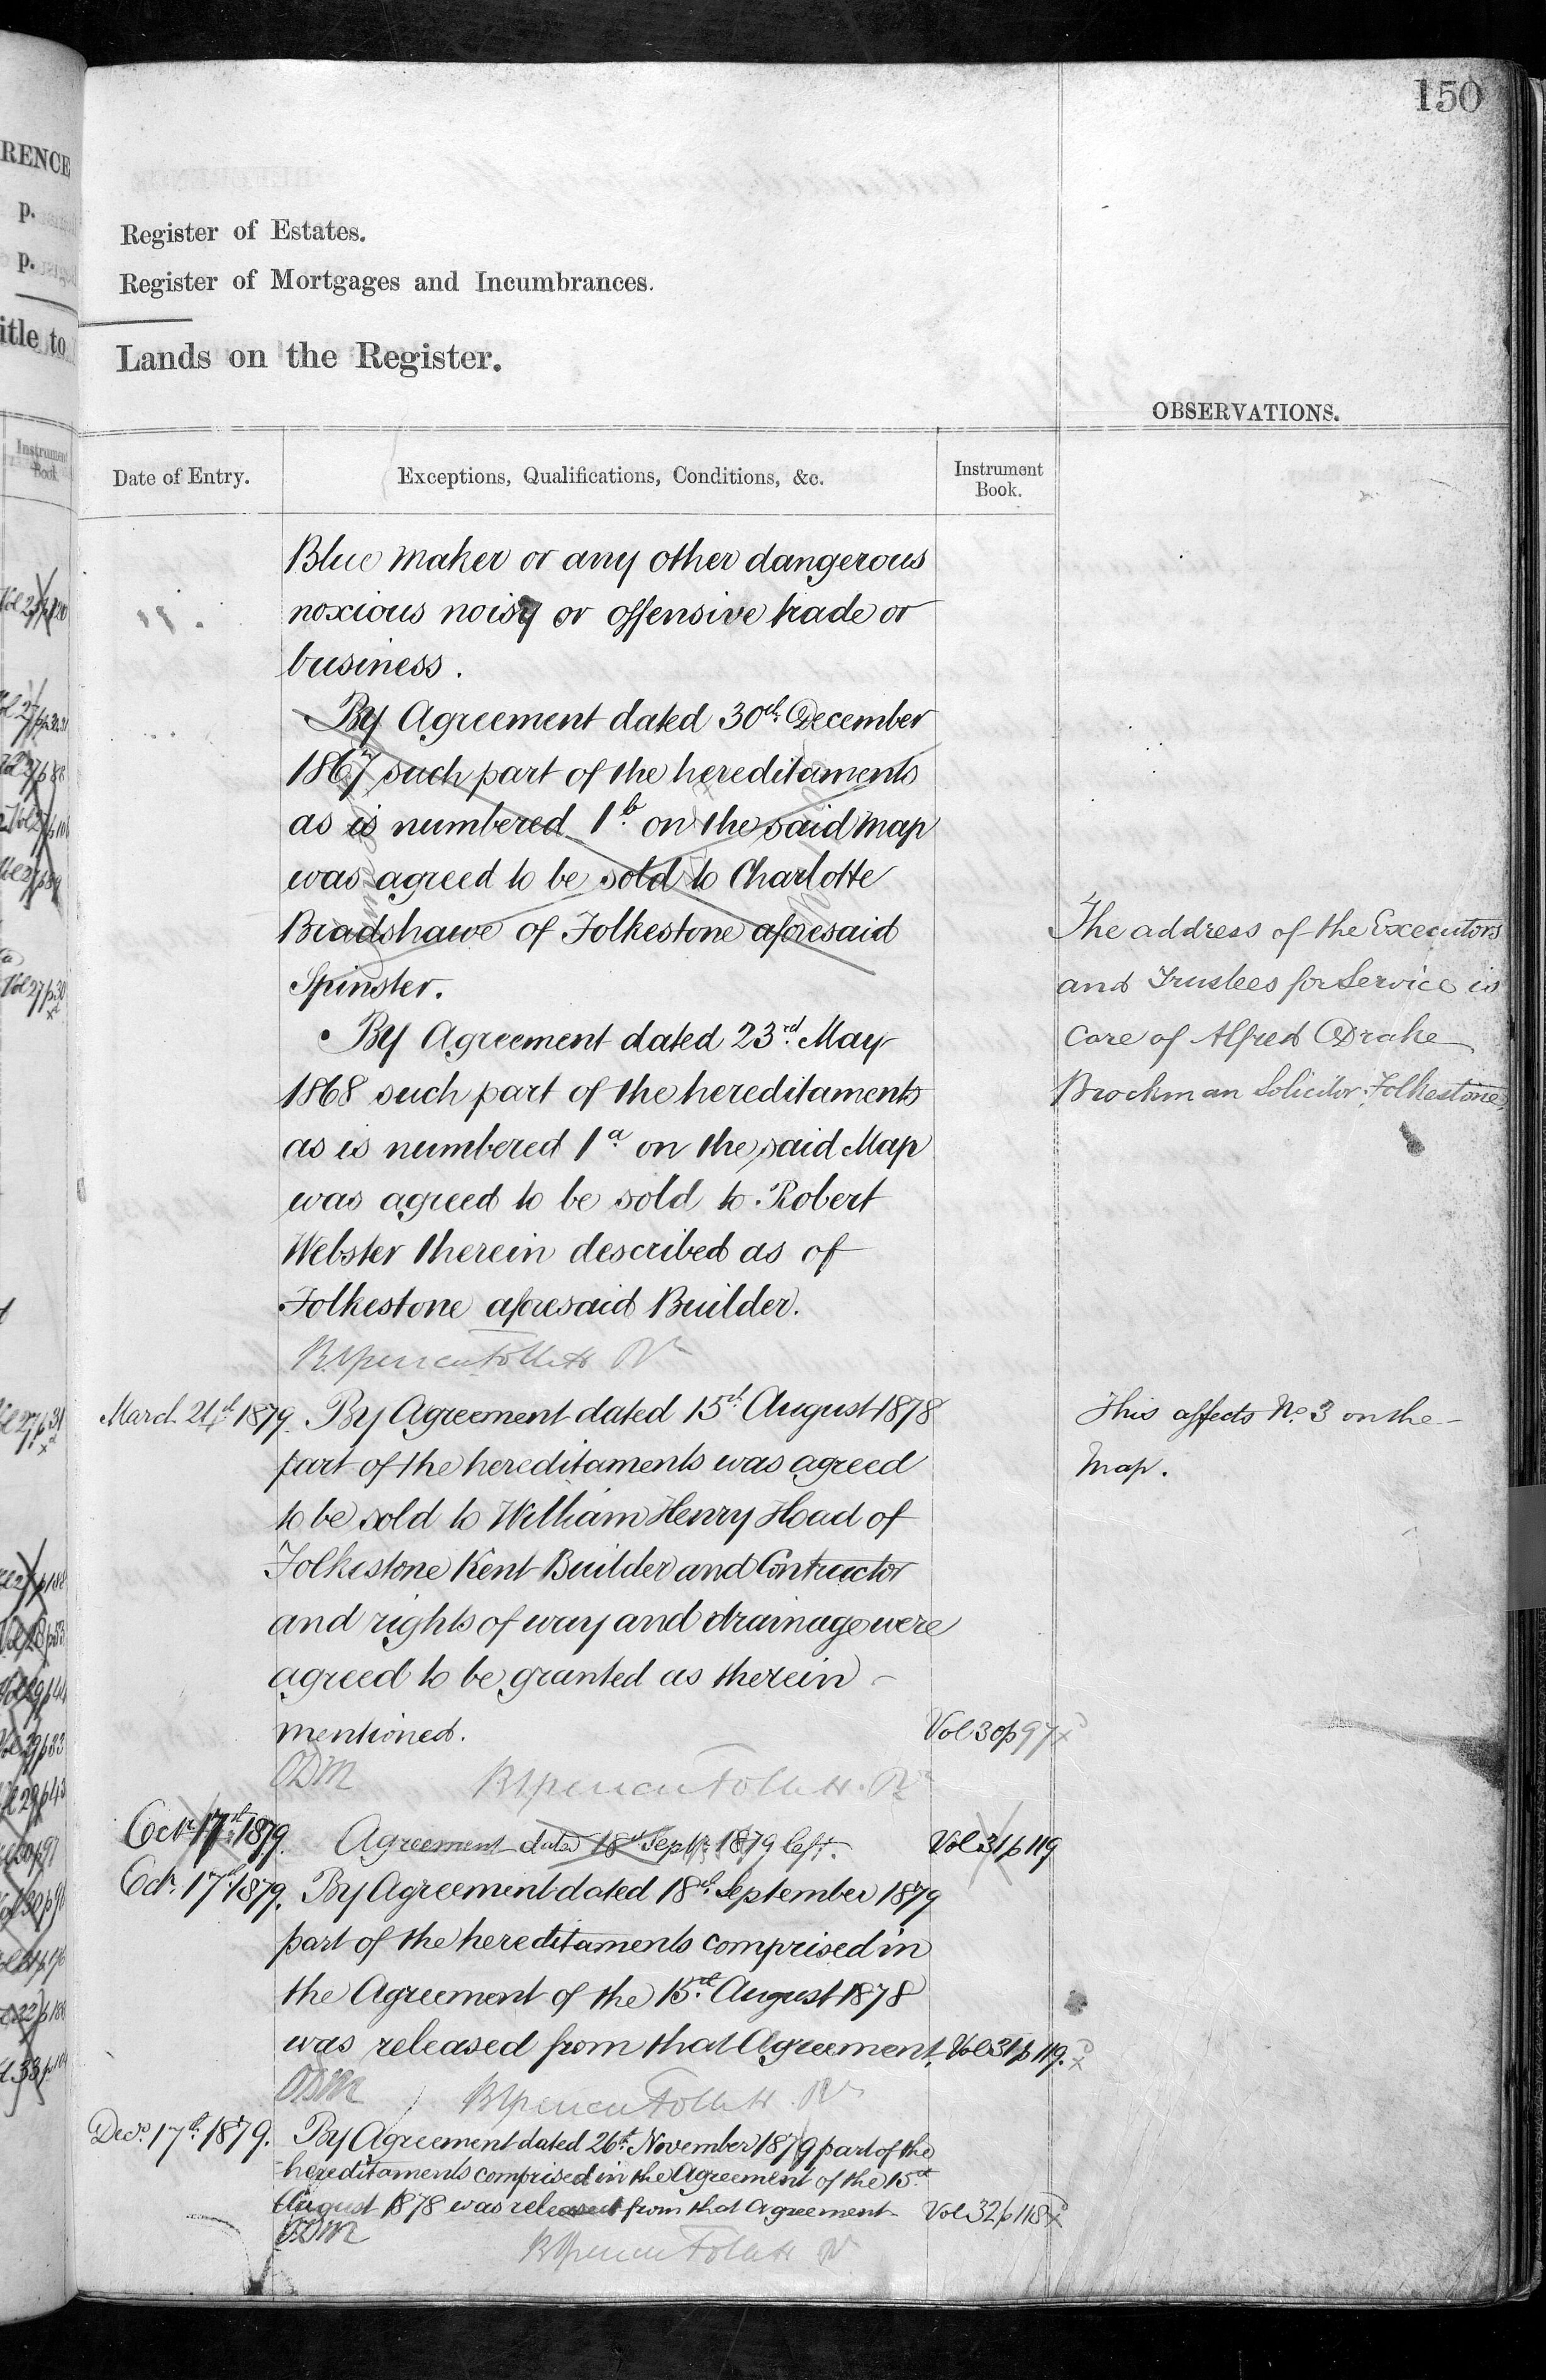 150
Register of Estates.
Register of Mortgages and Incumbrances.
Lands on the Register.
OBSERVATIONS.
Date of Entry.
Exceptions, Qualifications, Conditions, &c.
Instrument
Book.
Blue maker or any other dangerous
noxious noisy or offensive trade or
business.
By Agreement dated 30th. December
1867 such part of the hereditaments
as is numbered 1b. on the said map
was agreed to be sold to Charlotte
Bradshawe of Folkestone aforesaid
Spinster.
By Agreement dated 23rd. May
1868 such part of the hereditaments
as is numbered 1a. on the said Map
was agreed to be sold to Robert
Webster therein described as of
Folkestone aforesaid Builder.
The address of the Executors
and Trustees for Service is
Care of Alfred Drake
Brockman Solicitor Folkestone
March 21st 1879. By Agreement dated 15th. August 1878
part of the hereditaments was agreed
to be sold to William Henry Hoad of
Folkestone Kent Builder and Contractor
and rights of way and drainage were
agreed to be granted as therein
mentioned. Vol 30 p 97
This affects No. 3 on the
Map.
ODM
Oct. 17th 1879. Agreement dated 18th Septr. 1879 left. Vol 31 p 119
Oct. 17th. 1879. By Agreement dated 18th. September 1879
part of the hereditaments comprised in
the Agreement of the 15th. August 1878
was released from that Agreement. Vol 31 p 119.
ODM
Decr. 17th. 1879. By Agreement dated 26th. November 1879 part of the
hereditaments comprised in the Agreement of the 15th.
August 1878 was released from that Agreement Vol 32 p 118
ODM
RENCE
p.
p.
itle to
Instrument
Book.